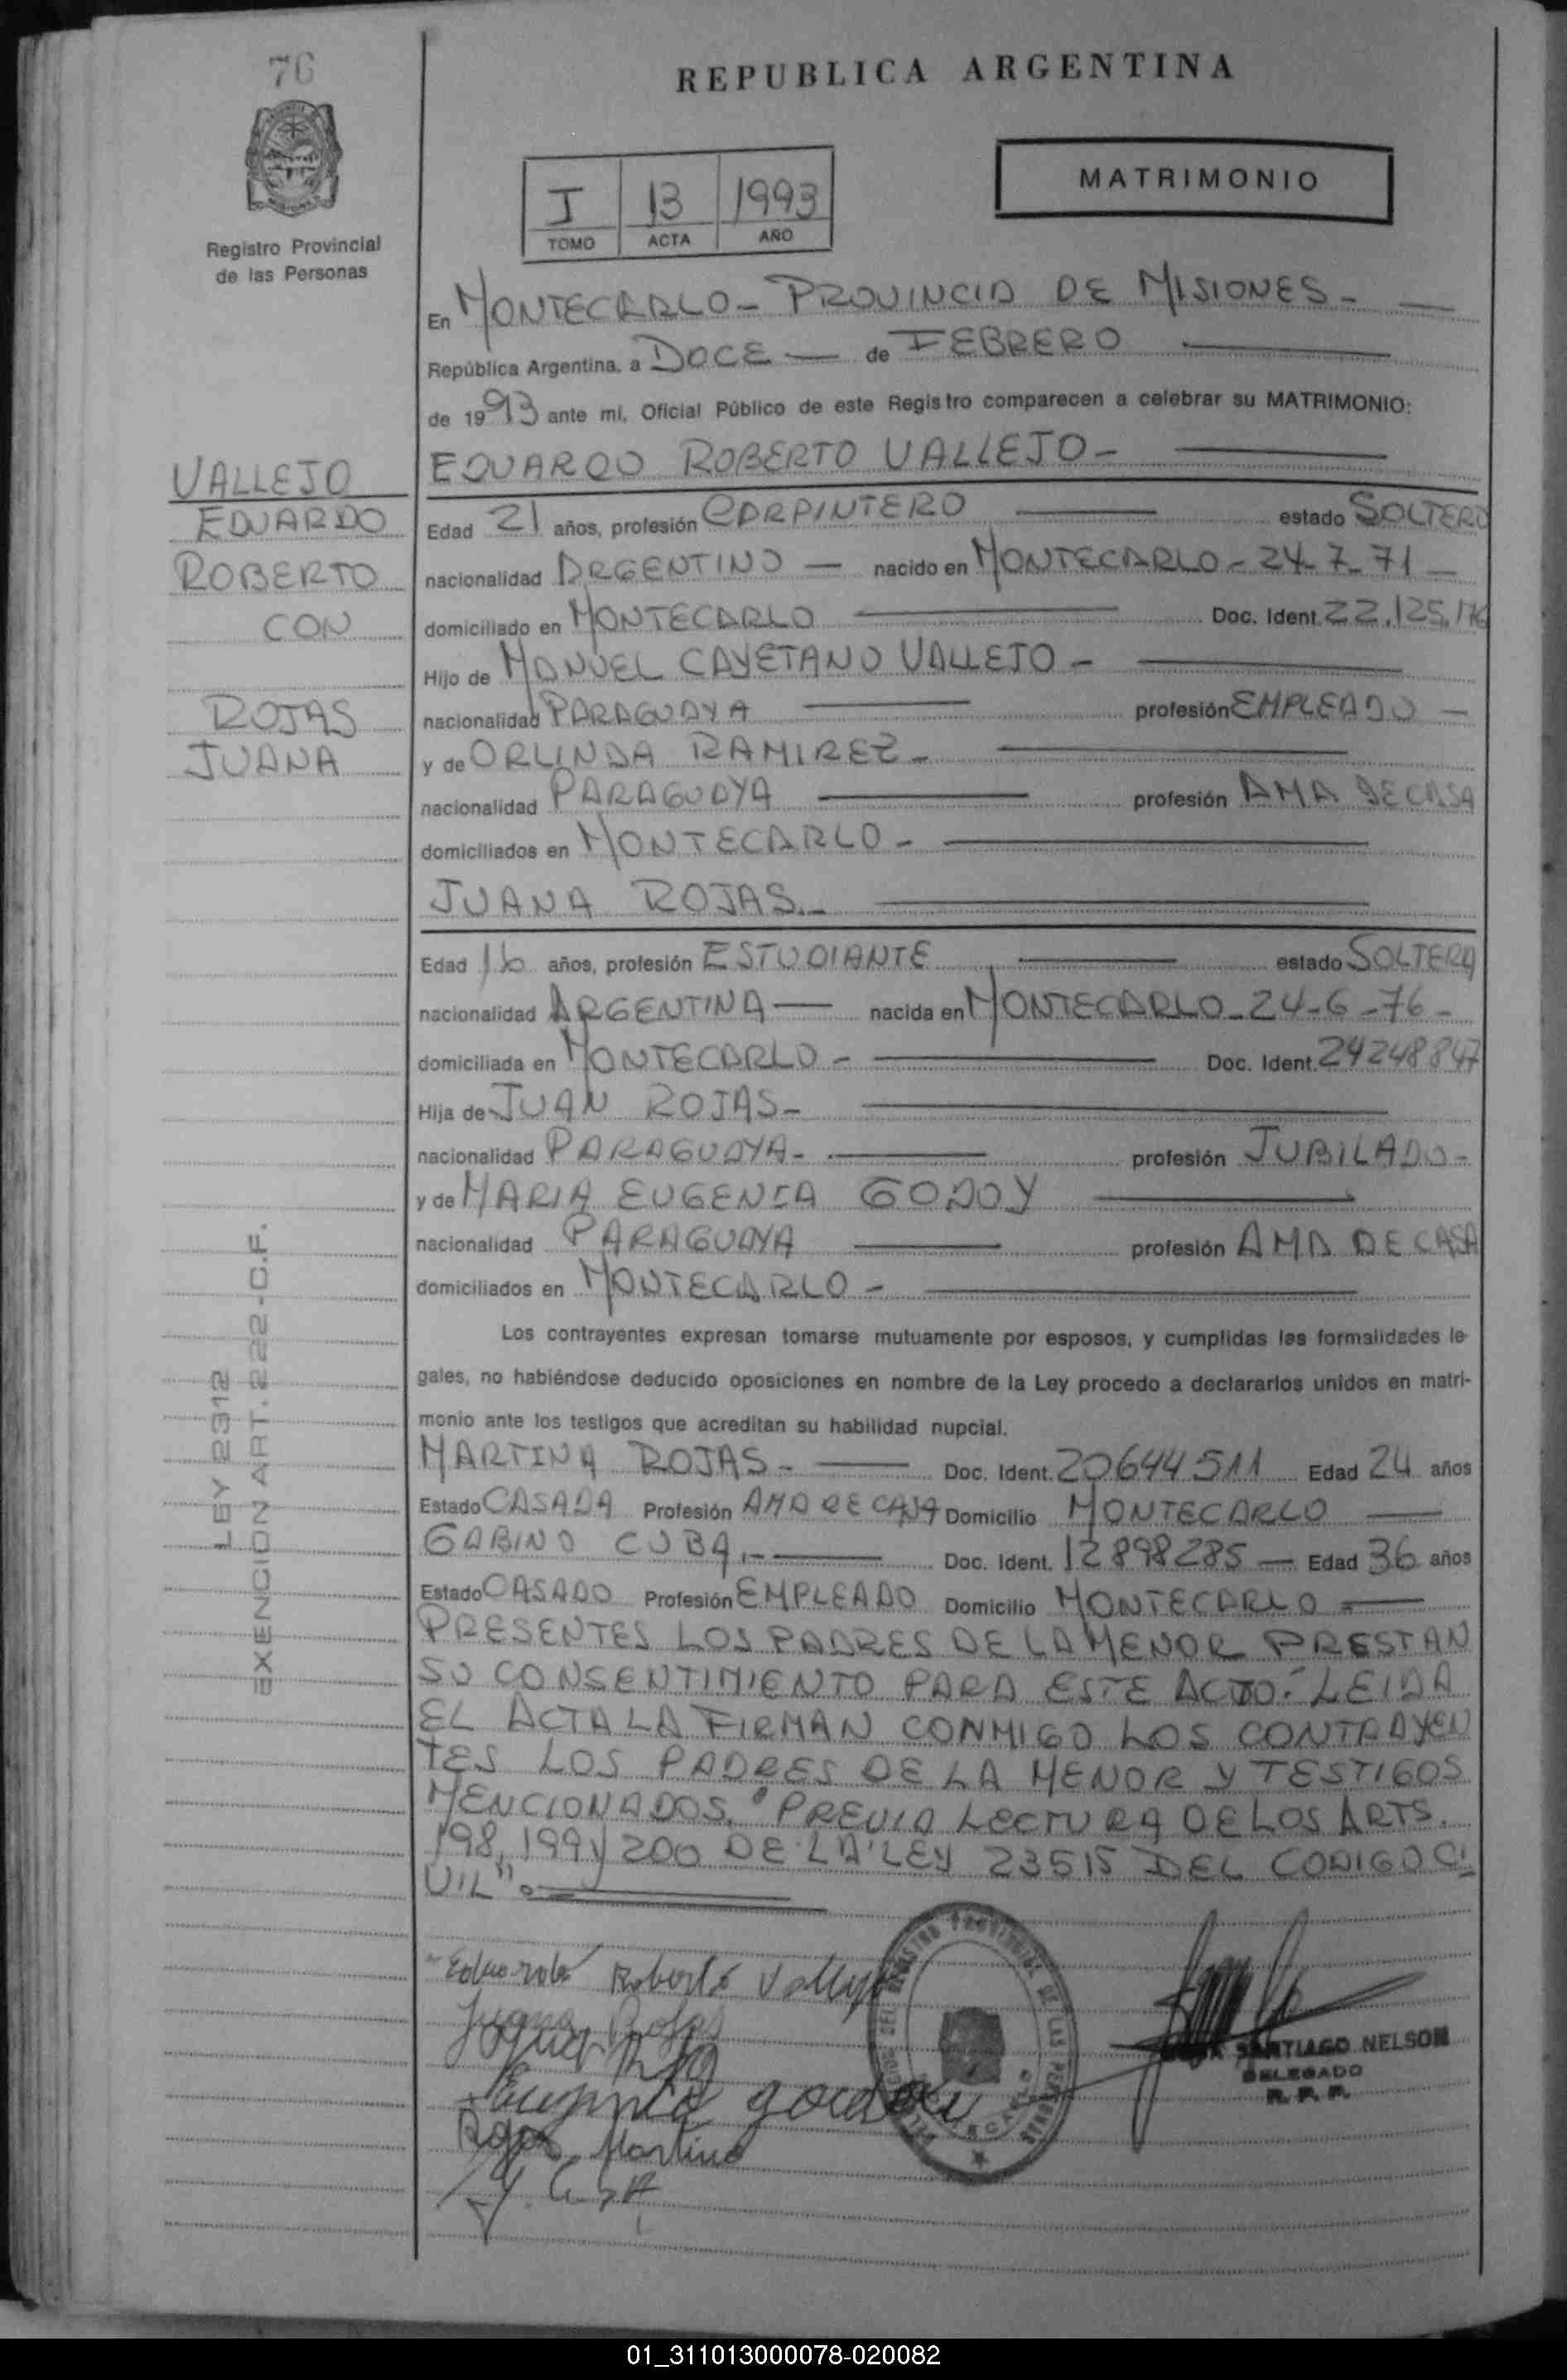 76
REPUBLICA ARGENTINA
MATRIMONIO
I 13 1993
TOMO ACTA AÑO
Registro Provincial
de las Personas
En MONTECARLO - PROVINCIA DE MISIONES -
República Argentina, a DOCE — de FEBRERO
de 1993 ante mí, Oficial Público de este Registro comparecen a celebrar su MATRIMONIO:
EDUARDO ROBERTO VALLEJO -
VALLEJO
EDUARDO
ROBERTO
CON
ROJAS
JUANA
Edad 21 años, profesión CARPINTERO estado SOLTERO
nacionalidad ARGENTINO — nacido en MONTECARLO - 24-7-71 —
domiciliado en MONTECARLO Doc. Ident. 22.125.176
Hijo de MANUEL CAYETANO VALLEJO -
nacionalidad PARAGUAYA profesión EMPLEADO -
y de ORLINDA RAMIREZ -
nacionalidad PARAGUAYA profesión AMA DE CASA
domiciliados en MONTECARLO -
JUANA ROJAS.-
Edad 16 años, profesión ESTUDIANTE estado SOLTERA
nacionalidad ARGENTINA — nacida en MONTECARLO - 24-6-76 -
domiciliada en MONTECARLO - Doc. Ident. 24248847
Hija de JUAN ROJAS -
nacionalidad PARAGUAYA - profesión JUBILADO -
y de MARIA EUGENIA GODOY
nacionalidad PARAGUAYA profesión AMA DE CASA
domiciliados en MONTECARLO -
Los contrayentes expresan tomarse mutuamente por esposos, y cumplidas las formalidades le-
gales, no habiéndose deducido oposiciones en nombre de la Ley procedo a declararlos unidos en matri-
monio ante los testigos que acreditan su habilidad nupcial.
MARTINA ROJAS - Doc. Ident. 20644511 Edad 24 años
Estado CASADA Profesión AMA DE CASA Domicilio MONTECARLO
GABINO CUBA.- Doc. Ident. 12898285 — Edad 36 años
Estado CASADO Profesión EMPLEADO Domicilio MONTECARLO -
PRESENTES LOS PADRES DE LA MENOR PRESTAN
SU CONSENTIMIENTO PARA ESTE ACTO.- LEIDA
EL ACTA LA FIRMAN CONMIGO LOS CONTRAYEN
TES LOS PADRES DE LA MENOR Y TESTIGOS
MENCIONADOS. "PREVIA LECTURA DE LOS ARTS.
198, 199 y 200 DE LA LEY 23515 DEL CODIGO CI
VIL".
LEY 2312
EXENCION ART. 222-C.F.
Eduardo Roberto Vallejo
Juana Rojas
Eugenia
Rojas Martina
SANTIAGO NELSON
DELEGADO
R. P. P.
01_311013000078-020082